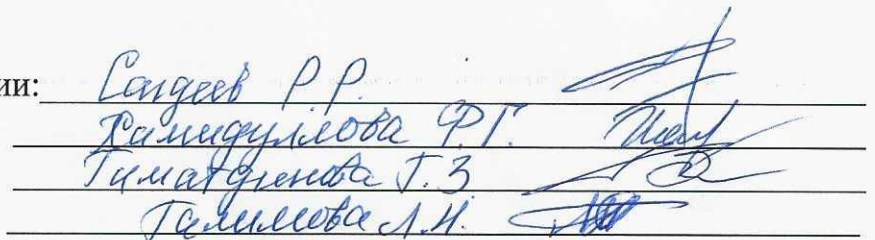 ии: Сагдеев Р.Р.
Хамидуллова Ф.Г.
Гиматдинова Г.З
Галимова Л.Н.